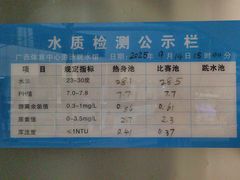 水质检测公示栏
广西体育中心游泳跳水馆 日期：2025年9月14日15时00分
水质 规定指标 热身池 比赛池 跳水池
水温 23-30度 28.1 28.5
PH值 7.0-7.8 7.7 7.7
游离余氯值 0.3-1mg/L 0.86 0.61
尿素值 0-3.5mg/L 2.7 2.3
浑浊度 ≤1NTU 0.41 0.37